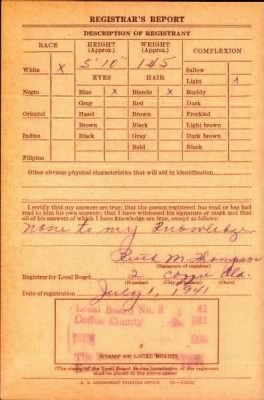 REGISTRAR'S REPORT
DESCRIPTION OF REGISTRANT
RACE HEIGHT (Approx.) WEIGHT (Approx.) COMPLEXION
White X 5' 10" 145 Sallow
EYES HAIR Light
Negro Blue X Blonde X Ruddy
Gray Red Dark
Oriental Hazel Brown Freckled
Brown Black Light brown
Indian Black Gray Dark brown
Bald Black
Filipino
Other obvious physical characteristics that will aid in identification
I certify that my answers are true; that the person registered has read or has had read to him his own answers; that I have witnessed his signature or mark and that all of his answers of which I have knowledge are true, except as follows:
None to my Knowledge
M. Thompson
(Signature of registrar)
Registrar for Local Board 2 Coffee Ala.
Date of registration July 1, 1941
Local Board No. 2
Coffee County
(STAMP OF LOCAL BOARD)